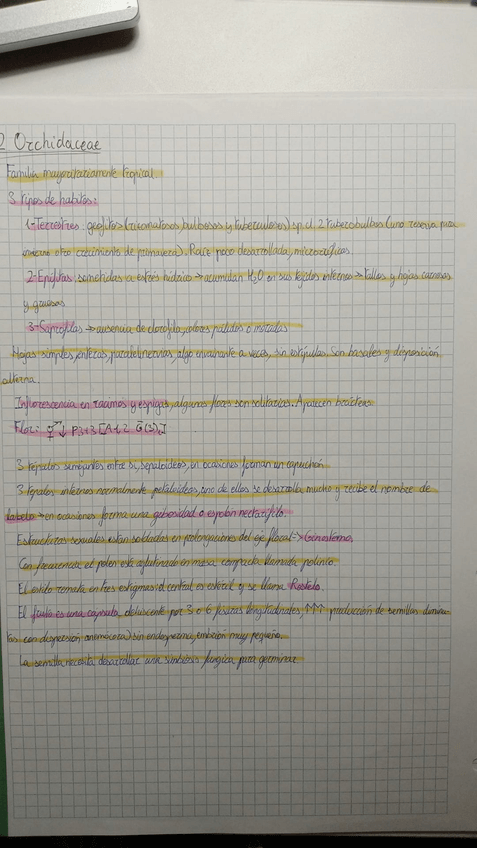 2 Orchidaceae
Familia mayoritariamente tropical.
3 tipos de habitos:
1-Terrestres: geofitos (rizomatosos, bulbosos y tuberculosos) sp. cl. 2 tuberobulbos (uno reserva para
invierno otro crecimiento de primavera). Raíz poco desarrollada, micorrícicas.
2-Epífitas: sometidas a estrés hídrico → acumulan H2O en sus tejidos internos → tallos y hojas carnosas
y gruesas
3-Saprofitas → ausencia de clorofila, colores pálidos o morados
Hojas simples, enteras, paralelinervias, algo envainante a veces, sin estípulas. Son basales y disposición
alterna.
Inflorescencia en racimos y espigas, algunas flores son solitarias. Aparecen brácteas
Flor: ⚥ ↓ P3+3 [A1,2 G(3)]
3 tépalos semejantes entre sí, sepaloideos, en ocasiones forman un capuchón
3 tépalos internos normalmente petaloideos, uno de ellos se desarrolla mucho y recibe el nombre de
labelo → en ocasiones forma una gibosidad o espolón nectarífero.
Estructuras sexuales están soldadas en prolongaciones del eje floral → Ginostemo.
Con frecuencia el polen está aglutinado en masa compacta llamada polinio.
El estilo remata en tres estigmas: el central es estéril y se llama Rostelo.
El fruto es una cápsula, dehiscente por 3 o 6 fisuras longitudinales, ↑↑↑ producción de semillas diminu-
tas con dispersión anemócora) sin endosperma, embrión muy pequeño.
La semilla necesita desarrollar una simbiosis fúngica para germinar